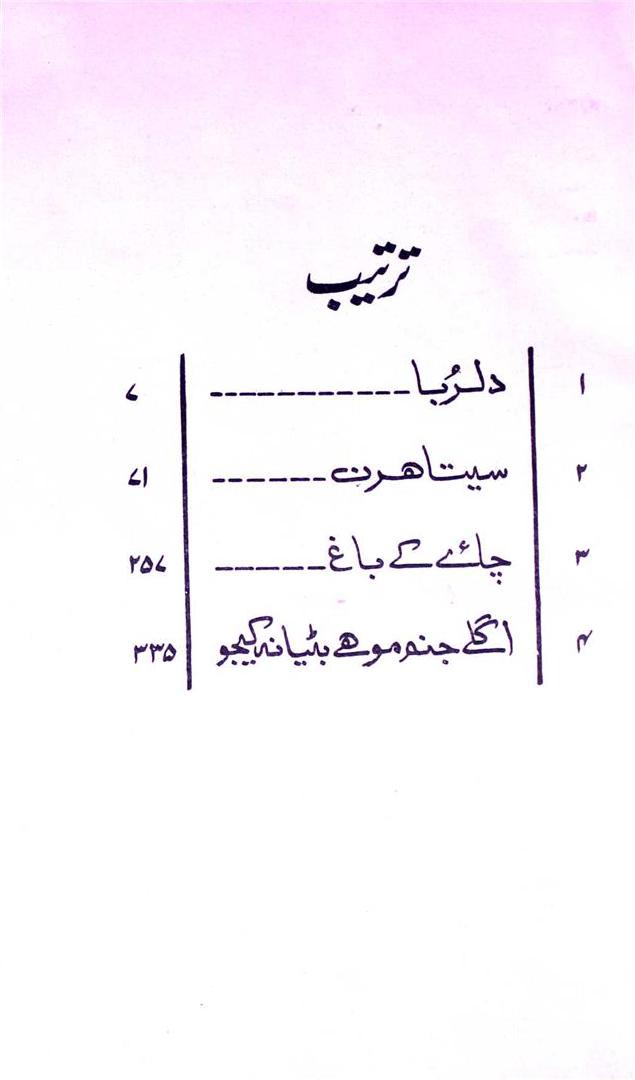 ترتیب
۱ دلرُبا ----------- ۷
۲ سیتا ھرن ------ ۷۱
۳ چائے کے باغ ----- ۲۵۷
۴ اگلے جنم موھے بٹیا نہ کیجو ۳۳۵